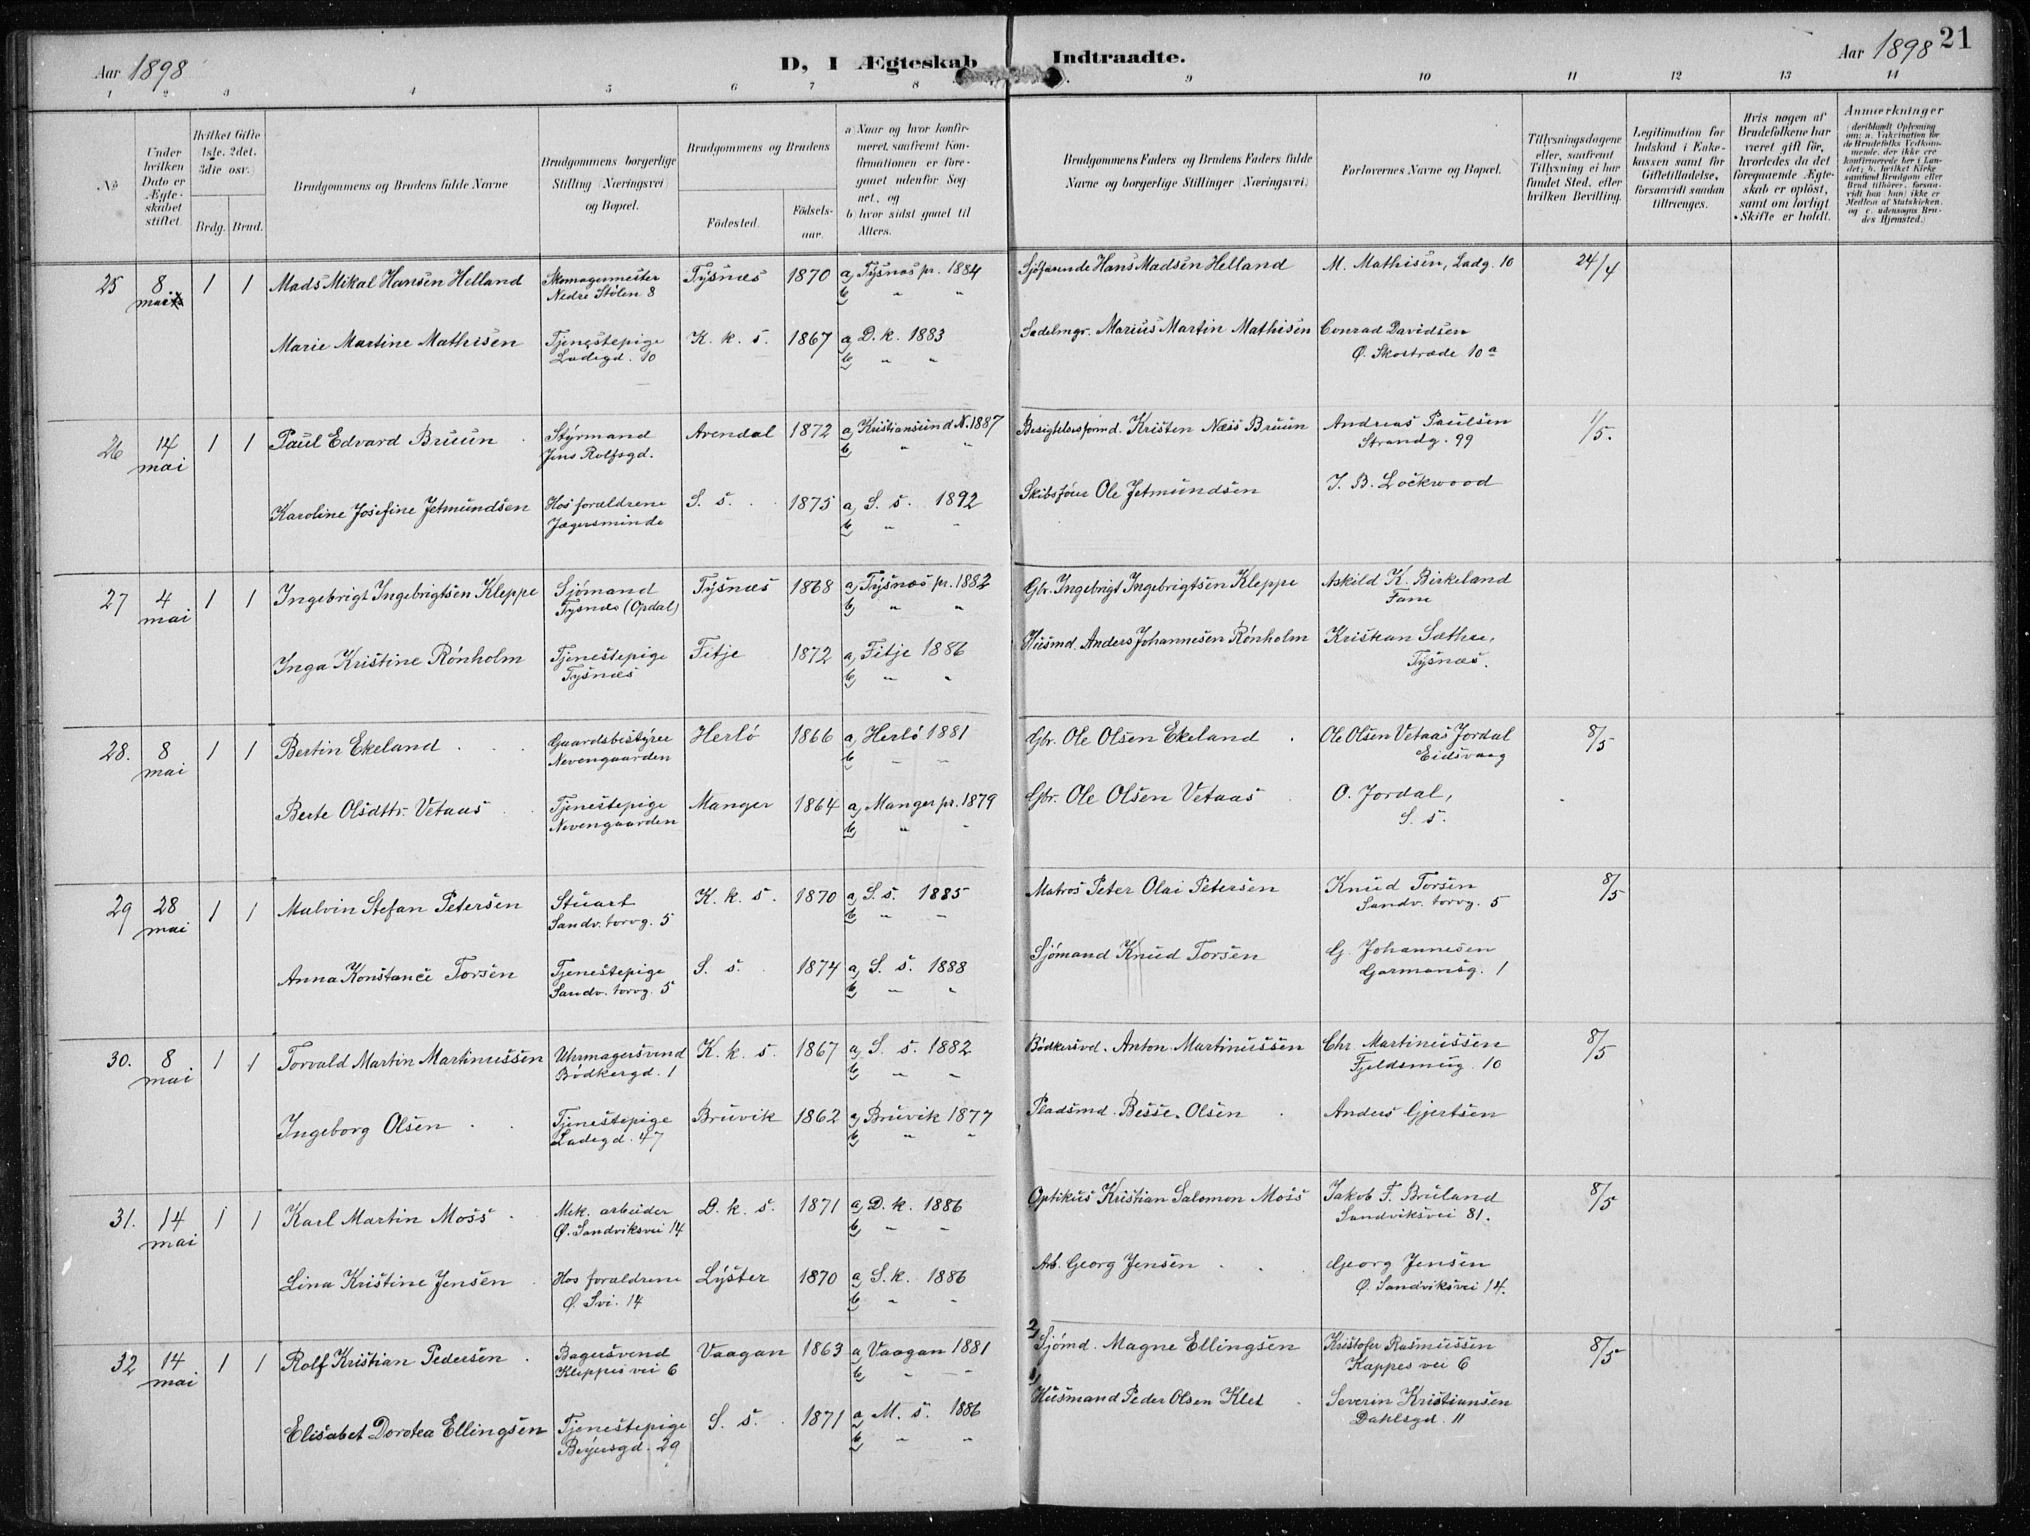 Aar 1898
D, I Ægteskab Indtraadte.
Aar 1898 21
1 2 3 4 5 6 7 8 9 10 11 12 13 14
No
Under hvilken Dato er Ægteskabet stiftet.
Hvilket Gifte (1ste, 2det, 3die osv.)
Brdg. Brud.
Brudgommens og Brudens fulde Navne
Brudgommens borgerlige Stilling (Næringsvei) og Bopæl.
Brudgommens og Brudens
Födested.
Födselsaar.
a) Naar og hvor konfirmeret, saafremt Konfirmationen er foregaaet udenfor Sognet, og
b) hvor sidst gaaet til Alters.
Brudgommens Faders og Brudens Faders fulde Navne og borgerlige Stillinger (Næringsvei)
Forlovernes Navne og Bopæl.
Tillysningsdagene eller, saafremt Tillysning ei har fundet Sted, efter hvilken Bevilling.
Legitimation for Indskud i Enkekassen samt for Giftetilladelse, forsaavidt saadan tiltrænges.
Hvis nogen af Brudefolkene har været gift för, hvorledes da det foregaaende Ægteskab er oplöst, samt om lovligt Skifte er holdt.
Anmærkninger (deriblandt Oplysning om: a. Vakcination for de Brudefolks Vedkommende, der ikke ere konfirmerede her i Landet; b. hvilket Kirkesamfund Brudgom eller Brud tilhörer, forsaavidt han (hun) ikke er Medlem af Statskirken, og c. udensogns Brudes Hjemsted.)
25 8 mai 1 1 Mads Mikal Hansen Helland Skomagermester Nedre Stølen 8 Tysnæs 1870 a) Tysnæs pr. 1884 b) " " Sjøfarende Hans Madsen Helland M. Mathisen, Ladg. 10 24/4
Marie Martine Mathisen Tjenestepige Ladegd. 10 K. k. s. 1867 a) D. k. 1883 b) " " Sadelmgr. Marius Martin Mathisen Conrad Davidsen Ø. Skostræde 10 a
26 14 mai 1 1 Paul Edvard Bruun Styrmand Jens Rolfsgd. Arendal 1872 a) Kristiansund N. 1887 b) " " Besigtelsesformd. Kristen Næss Bruun Andreas Paulsen Strandg. 99 1/5.
Karoline Josefine Jetmundsen Hos forældrene Jægersminde S. s. 1875 a) S. s. 1892 b) " " Skibsfører Ole Jetmundsen J. B. Lockwood
27 4 mai 1 1 Ingebrigt Ingebrigtsen Kleppe Sjømand Tysnæs (Opdal) Tysnæs 1868 a) Tysnæs pr. 1882 b) " " Gbr. Ingebrigt Ingebrigtsen Kleppe Askild K. Birkeland Fane
Inga Kristine Rønholm Tjenestepige Tysnæs Fitje 1872 a) Fitje 1886 b) " " Husmd. Anders Johannesen Rønholm Kristian Sæthre, Tysnæs.
28. 8 mai 1 1 Bertin Ekeland Gaardsbestyrer Nevengaarden Herlö 1866 a) Herlö 1881 b) " " Gbr. Ole Olsen Ekeland Ole Olsen Vetaas Jordal Eidsvaag 8/5
Berte Olsdttr. Vetaas Tjenestepige Nevengaarden Manger 1864 a) Manger pr. 1879 b) " " Gbr. Ole Olsen Vetaas O. Jordal, S. s.
29 28 mai 1 1 Malvin Stefan Petersen Stuart Sandv. torvg. 5 K. k. s. 1870 a) S. s. 1885 b) " " Matros Peter Olai Petersen Knud Torsen Sandv. torvg. 5 8/5
Anna Konstance Torsen Tjenestepige Sandv. torvg. 5 S. s. 1874 a) S. s. 1888 b) " " Sjømand Knud Torsen G. Johannesen Gormansg. 1
30. 8 mai 1 1 Torvald Martin Martinussen Uhrmagersvend Bødkergd. 1 K. k. s. 1867 a) S. s. 1882 b) " " Bødkersvd. Anton Martinussen Chr Martinussen Fjeldsmug 10 8/5
Ingeborg Olsen Tjenestepige Ladegd. 47 Bruvik 1862 a) Bruvik 1877 b) " " Pladsmd. Besse Olsen Anders Gjertsen
31. 14 mai 1 1 Karl Martin Moss Mek. arbeider Ø. Sandviksvei 14 D. k. s. 1871 a) D. k. 1886 b) " " Optikus Kristian Salomon Moss Jakob F. Bruland Sandviksvei 81. 8/5
Lina Kristine Jensen Hos forældrene Ø. Svi. 14 Lyster 1870 a) S. k. 1886 b) " " Arb. Georg Jensen Georg Jensen Ø. Sandviksvei 14.
32 14 mai 1 1 Rolf Kristian Pedersen Bagersvend Kleppes vei 6 Vaagan 1863 a) Vaagan 1881 b) " " 2) Sjømd. Magne Ellingsen Kristofer Rasmussen Kappes vei 6 8/5
Elisabet Dorotea Ellingsen Tjenestepige Beyersgd. 29 S. s. 1871 a) M. s. 1886 b) " " 1) Husmand Peder Olsen Klet Severin Kristiansen Dahlsgd. 11